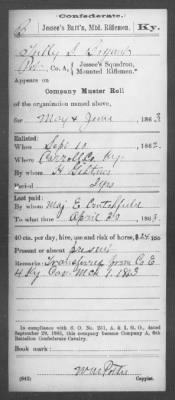 Confederate.
B Jessee's Batt'n, Mtd. Riflemen. Ky.
Tilly S. Bryant
Pvt, Co. A, Jessee's Squadron, Mounted Riflemen.*
Appears on
Company Muster Roll
of the organization named above,
for May & June, 1863
Enlisted:
When Sept 10, 1862
Where Carroll Co Ky.
By whom H. Giltner
Period 3 yrs
Last paid:
By whom Maj E. Crutchfield
To what time April 30, 1863.
40 cts. per day, hire, use and risk of horse, $24 100
Present or absent Present
Remarks: Transferred from Co E
4 Ky Cav. Mch 1. 1863
In compliance with S. O. No. 251, A. & I. G. O., dated
6th Battalion Confederate Cavalry.
Book mark:
(642) Copyist.